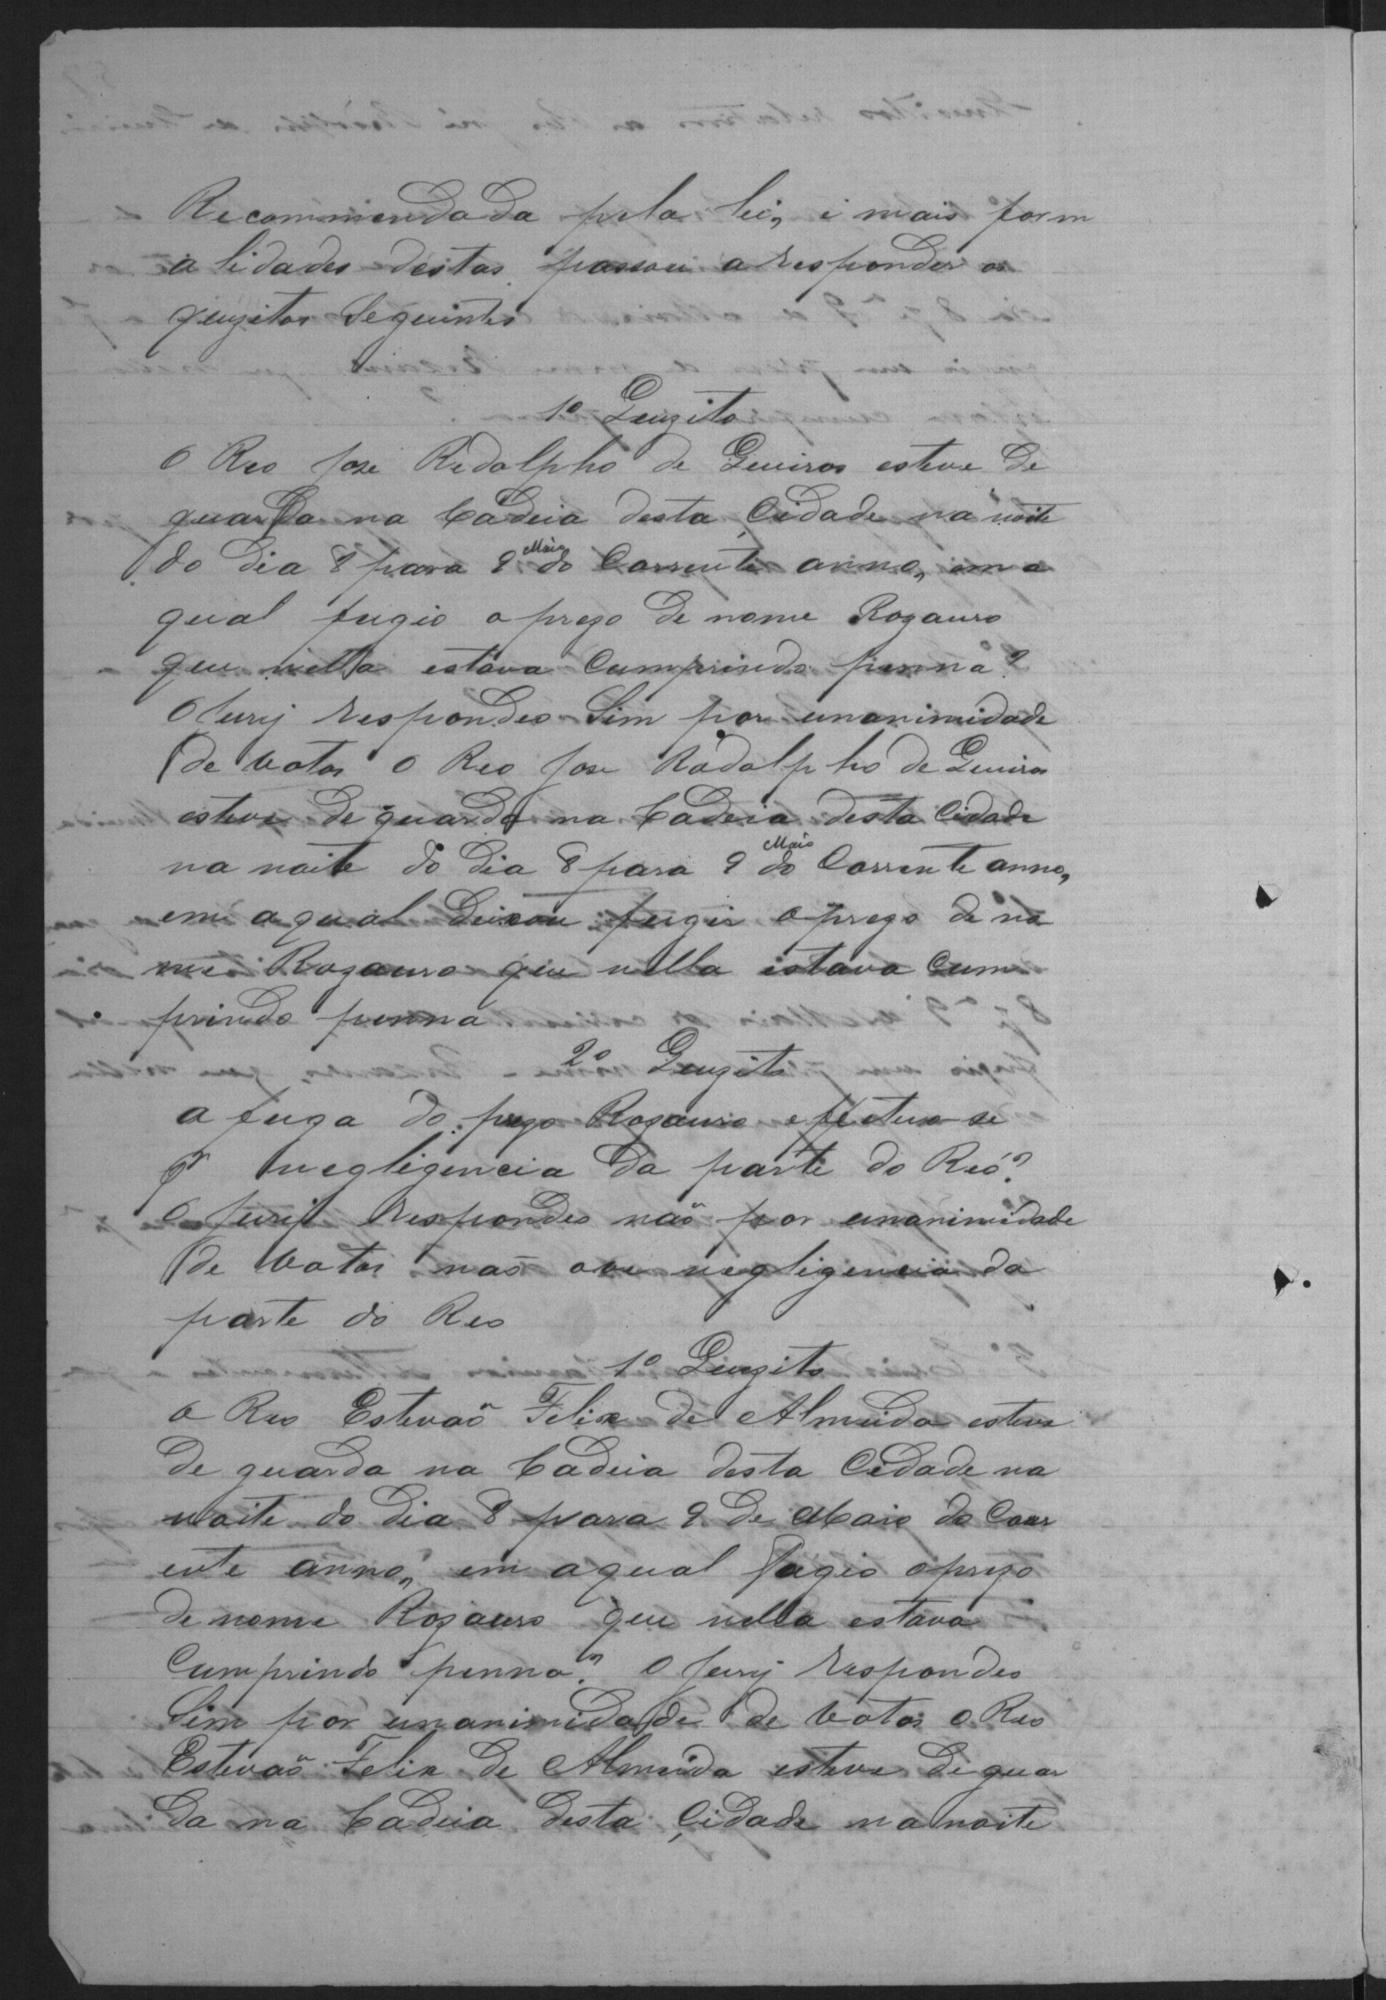 Recommendada pela lei, e mais form
alidades destas passou a responder os
quezitos seguintes
1º Quezito
O Reo Jose Rodolpho de Queiros esteve de
guarda na Cadeia desta Cidade na noite
do dia 8 para 9 Maio do Corrente anno, em a
qual fugio o prezo de nome Rozauro
que nella estava Cumprindo penna?
O Jury respondeo Sim por unanimidade
de votos o Reo Jose Rodolpho de Queiros
esteve de guarda na Cadeia desta Cidade
na noite do dia 8 para 9 Maio do Corrente anno,
em a qual deixou fugir o prezo de no
me Rozauro que nella estava Cum
prindo penna
2º Quezito
a fuga do prezo Rozauro efectuo-se
pr negligencia da parte do Reo?
O Jury respondeo não por unanimidade
de Votos não ove negligencia da
parte do Reo
1º Quezito
O Reo Estevaõ Felix de Almeida esteve
de guarda na Cadeia desta Cidade na
noite do dia 8 para 9 de Maio do Corr
ente anno, em a qual fugio o prezo
de nome Rozauro que nella estava
Cumprindo penna? O Jury respondeo
Sim por unanimidade de Votos o Reo
Estevaõ Felix de Almeida esteve de guar
da na Cadeia desta Cidade na noite